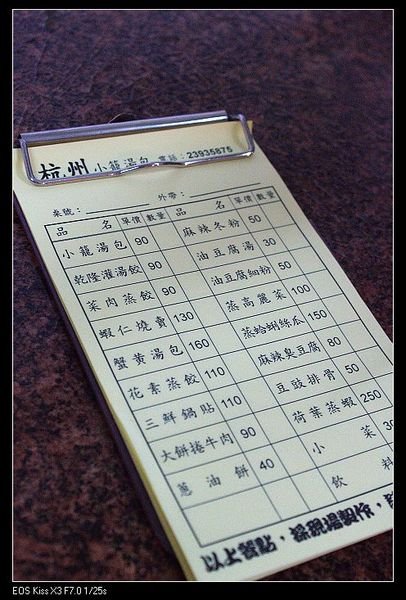 杭州 小籠湯包 電話:23935875
桌號: 外帶:
品名 單價 數量 品名 單價 數量
小籠湯包 90 麻辣冬粉 50
乾隆灌湯餃 90 油豆腐湯 30
菜肉蒸餃 90 油豆腐細粉 50
蝦仁燒賣 130 蒸高麗菜 100
蟹黃湯包 160 蒸蛤蜊絲瓜 150
花素蒸餃 110 麻辣臭豆腐 80
三鮮鍋貼 110 豆豉排骨 50
大餅捲牛肉 90 荷葉蒸蝦 250
蔥油餅 40 小菜 30
飲料
以上餐點，採現場製作，
EOS Kiss X3 F7.0 1/25s